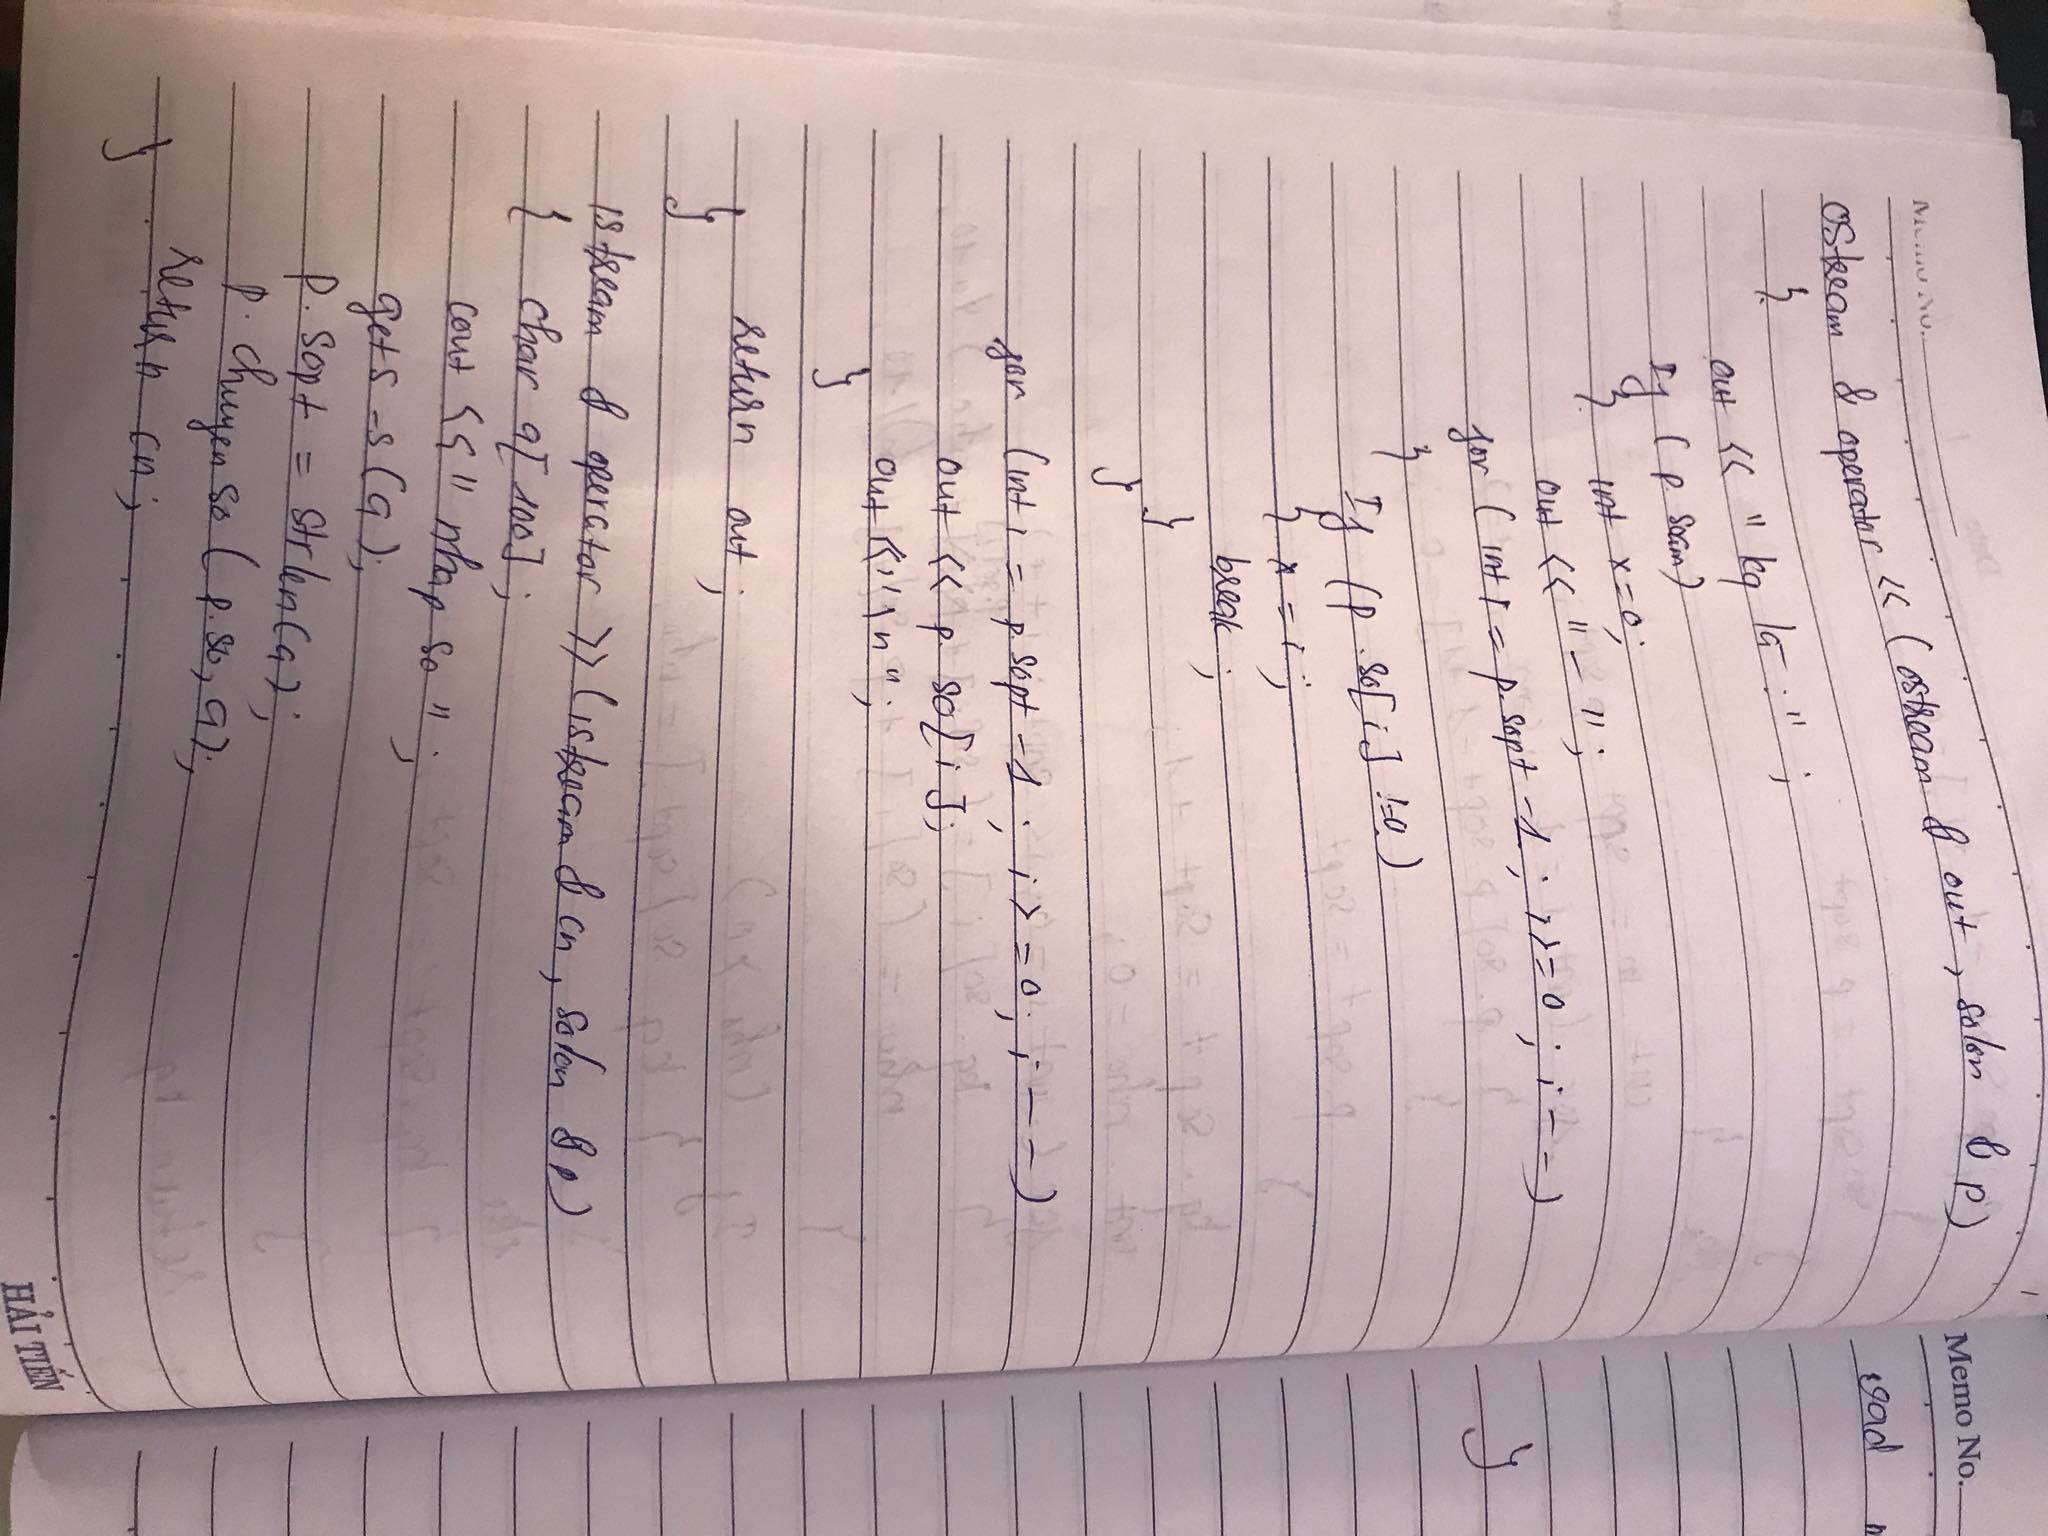 Memo No.
ostream & operator << (ostream & out, solon & p)
{
out << " kq la : " ;
If ( p soam)
{ int x=0;
out << " - " ;
for ( int i = p. sopt -1 ; i >= 0 ; i - - )
{
If (p. so[ i ] != 0 )
{ x = i ;
break ;
}
}
for (int i = p sopt -1 ; i > = 0 ; i - - )
out << p so[ i ] ;
out << " \ n" ;
}
return out ;
}
istream & operator >> (istream & cn, solon & p)
{ char q[ 100] ;
cout << " nhap so " ;
gets -s (q) ;
p. sopt = strlen(q) ;
p. chuyen so ( p. so, q) ;
return cn ;
}
HẢI TIẾN
Memo No.
}